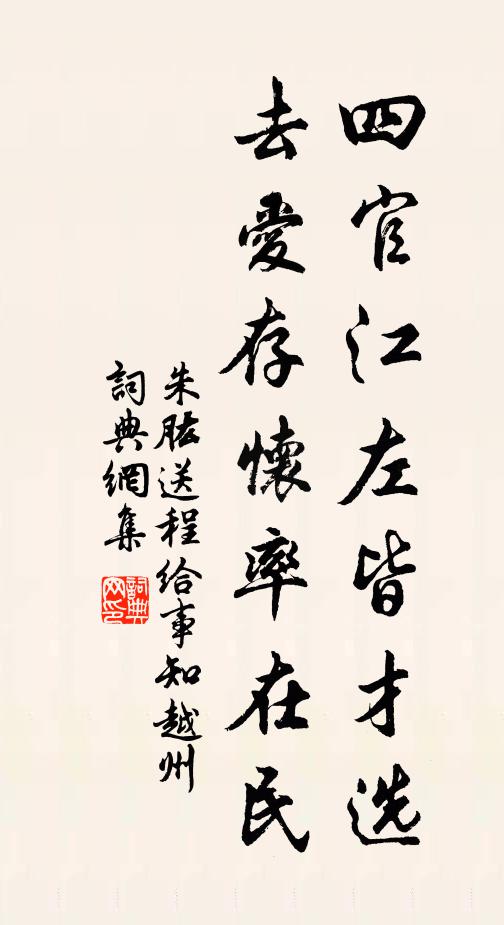 四官江左皆才选
去愛存懷率在民
朱肱送程给事知越州
詞典網集
詞典
网印